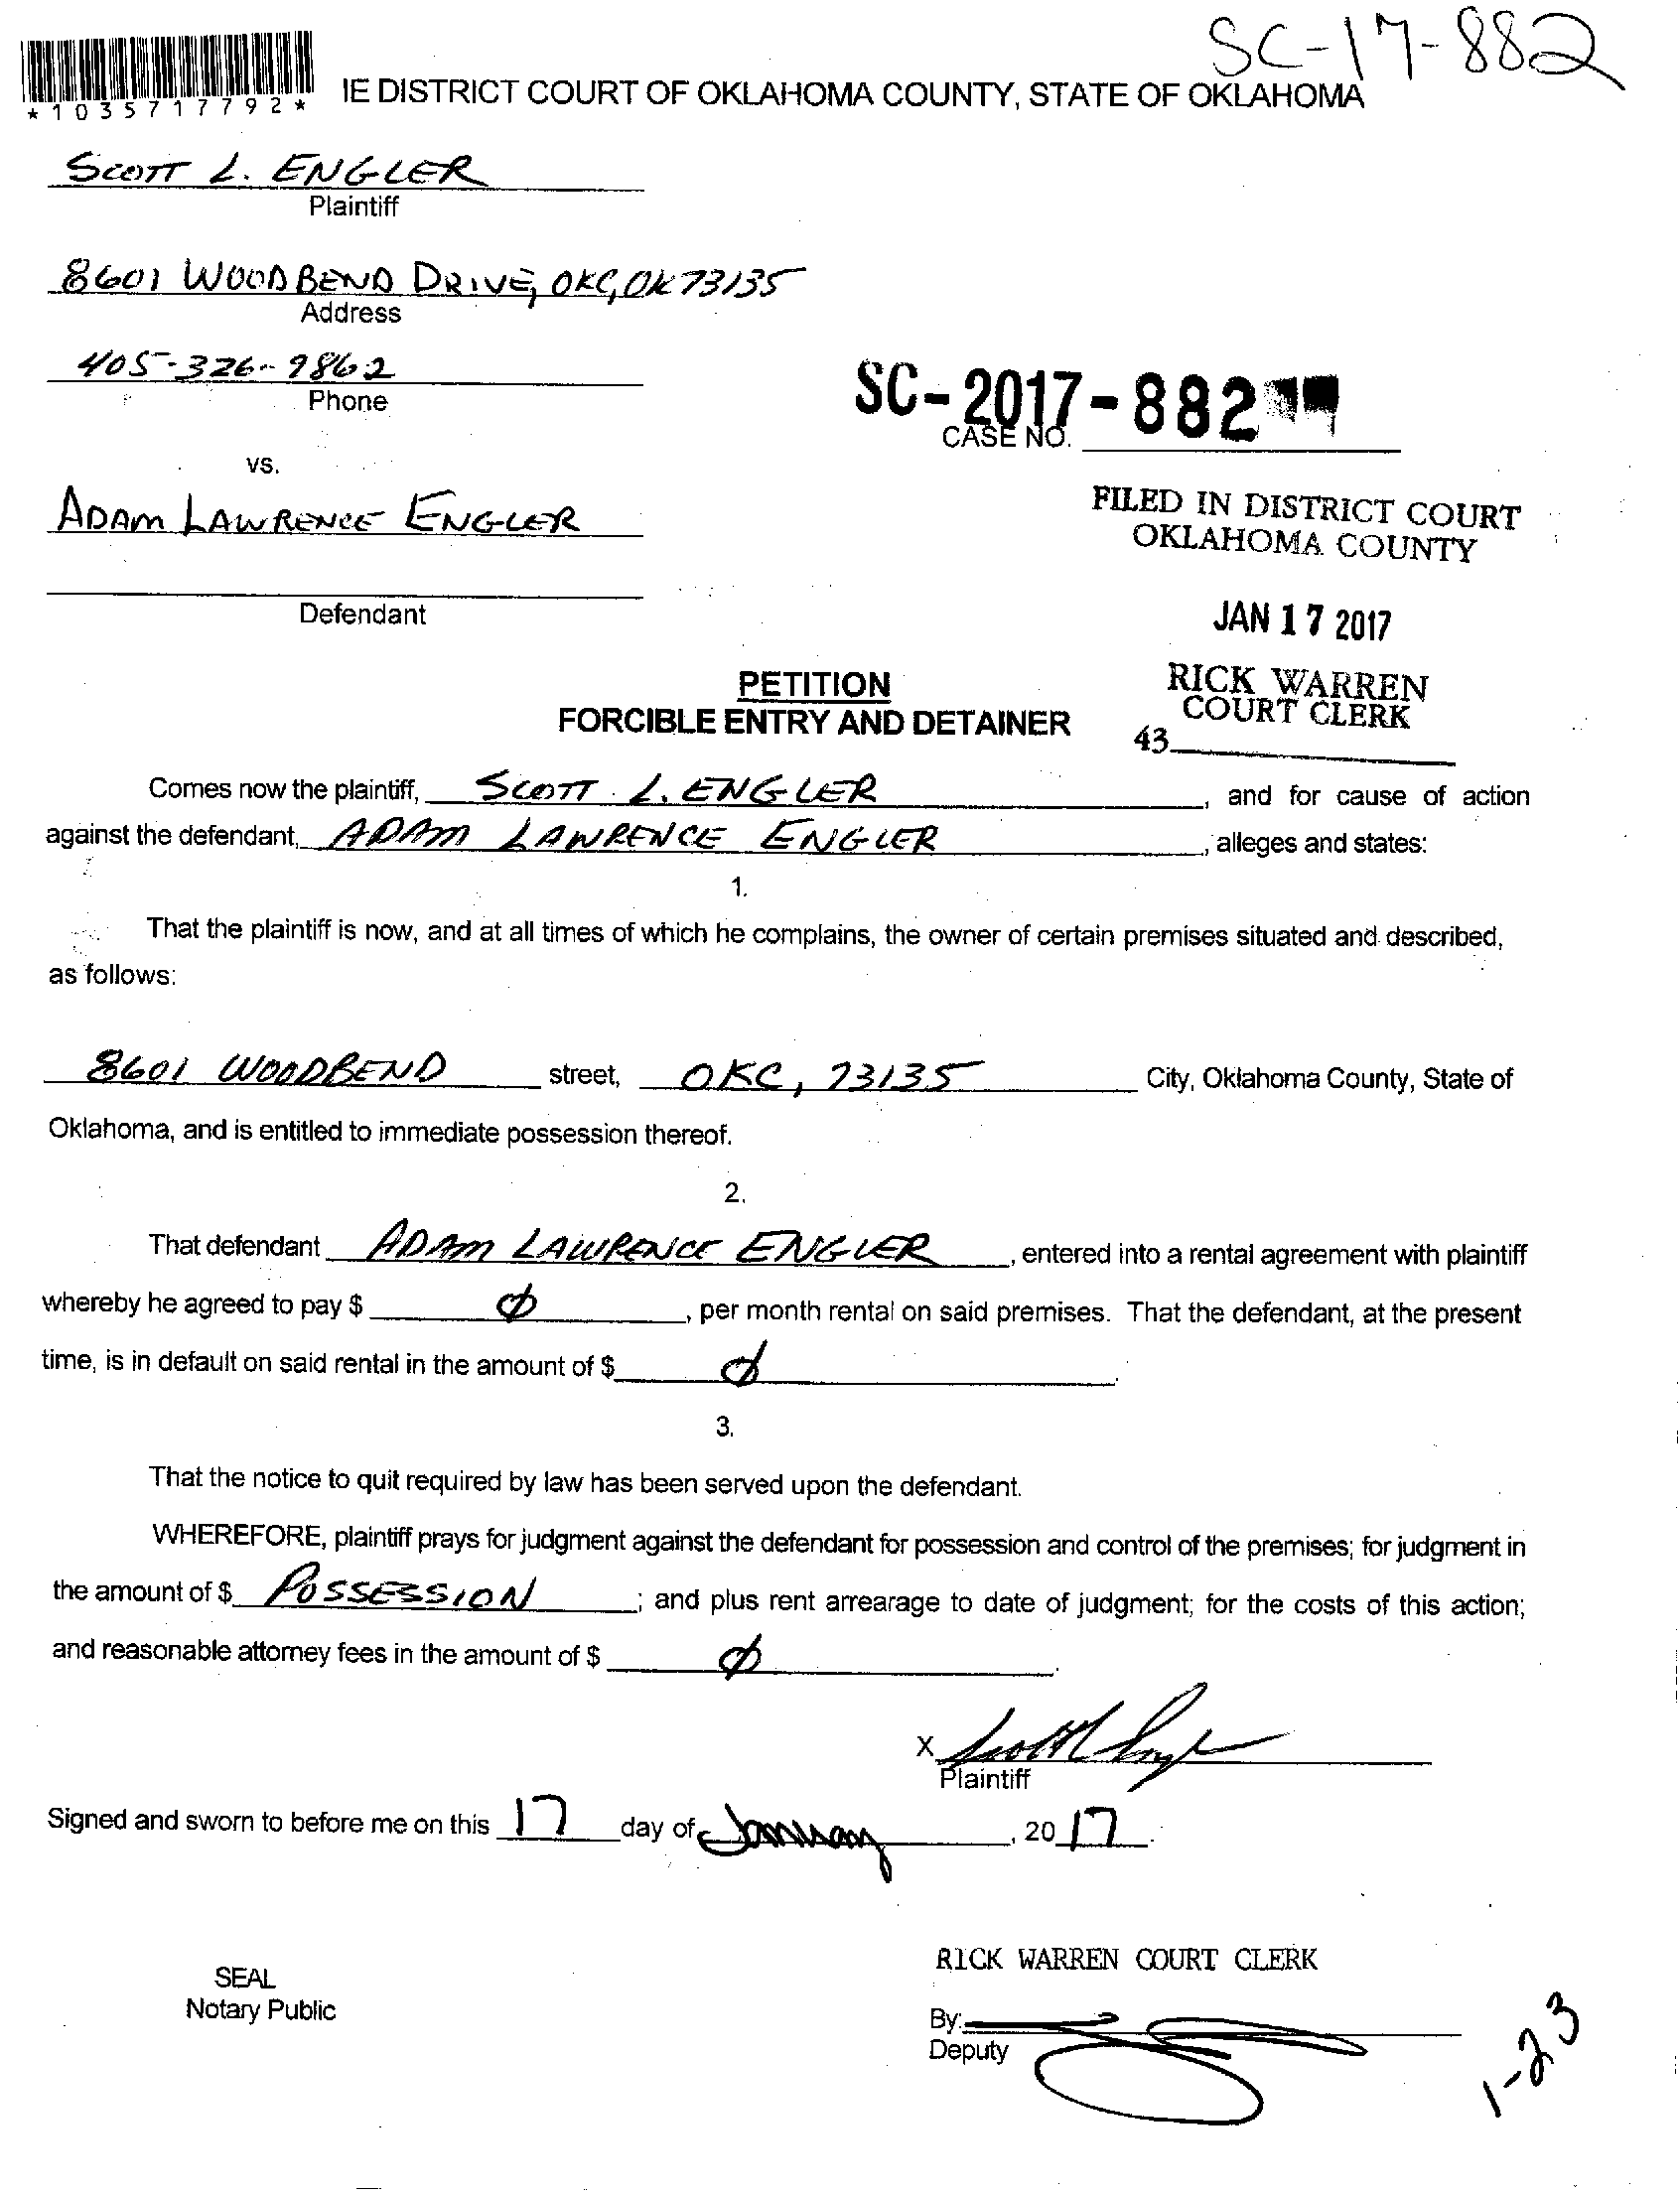 SC-17-882
*1035717792*
IE DISTRICT COURT OF OKLAHOMA COUNTY, STATE OF OKLAHOMA
SCOTT L. ENGLER
Plaintiff
8601 WOODBEND DRIVE, OKC, OK 73135
Address
405-326-9862
Phone
SC-2017-882
CASE NO.
vs.
ADAM LAWRENCE ENGLER
FILED IN DISTRICT COURT
OKLAHOMA COUNTY
Defendant
JAN 17 2017
PETITION
FORCIBLE ENTRY AND DETAINER
RICK WARREN
COURT CLERK
43
Comes now the plaintiff, SCOTT L. ENGLER, and for cause of action
against the defendant, ADAM LAWRENCE ENGLER, alleges and states:
1.
That the plaintiff is now, and at all times of which he complains, the owner of certain premises situated and described,
as follows:
8601 WOODBEND street, OKC, 73135 City, Oklahoma County, State of
Oklahoma, and is entitled to immediate possession thereof.
2.
That defendant ADAM LAWRENCE ENGLER, entered into a rental agreement with plaintiff
whereby he agreed to pay $ Ø, per month rental on said premises. That the defendant, at the present
time, is in default on said rental in the amount of $ Ø.
3.
That the notice to quit required by law has been served upon the defendant.
WHEREFORE, plaintiff prays for judgment against the defendant for possession and control of the premises; for judgment in
the amount of $ POSSESSION; and plus rent arrearage to date of judgment; for the costs of this action;
and reasonable attorney fees in the amount of $ Ø.
X
Plaintiff
Signed and sworn to before me on this 17 day of January, 2017.
RICK WARREN COURT CLERK
SEAL
Notary Public
By:
Deputy
1-23